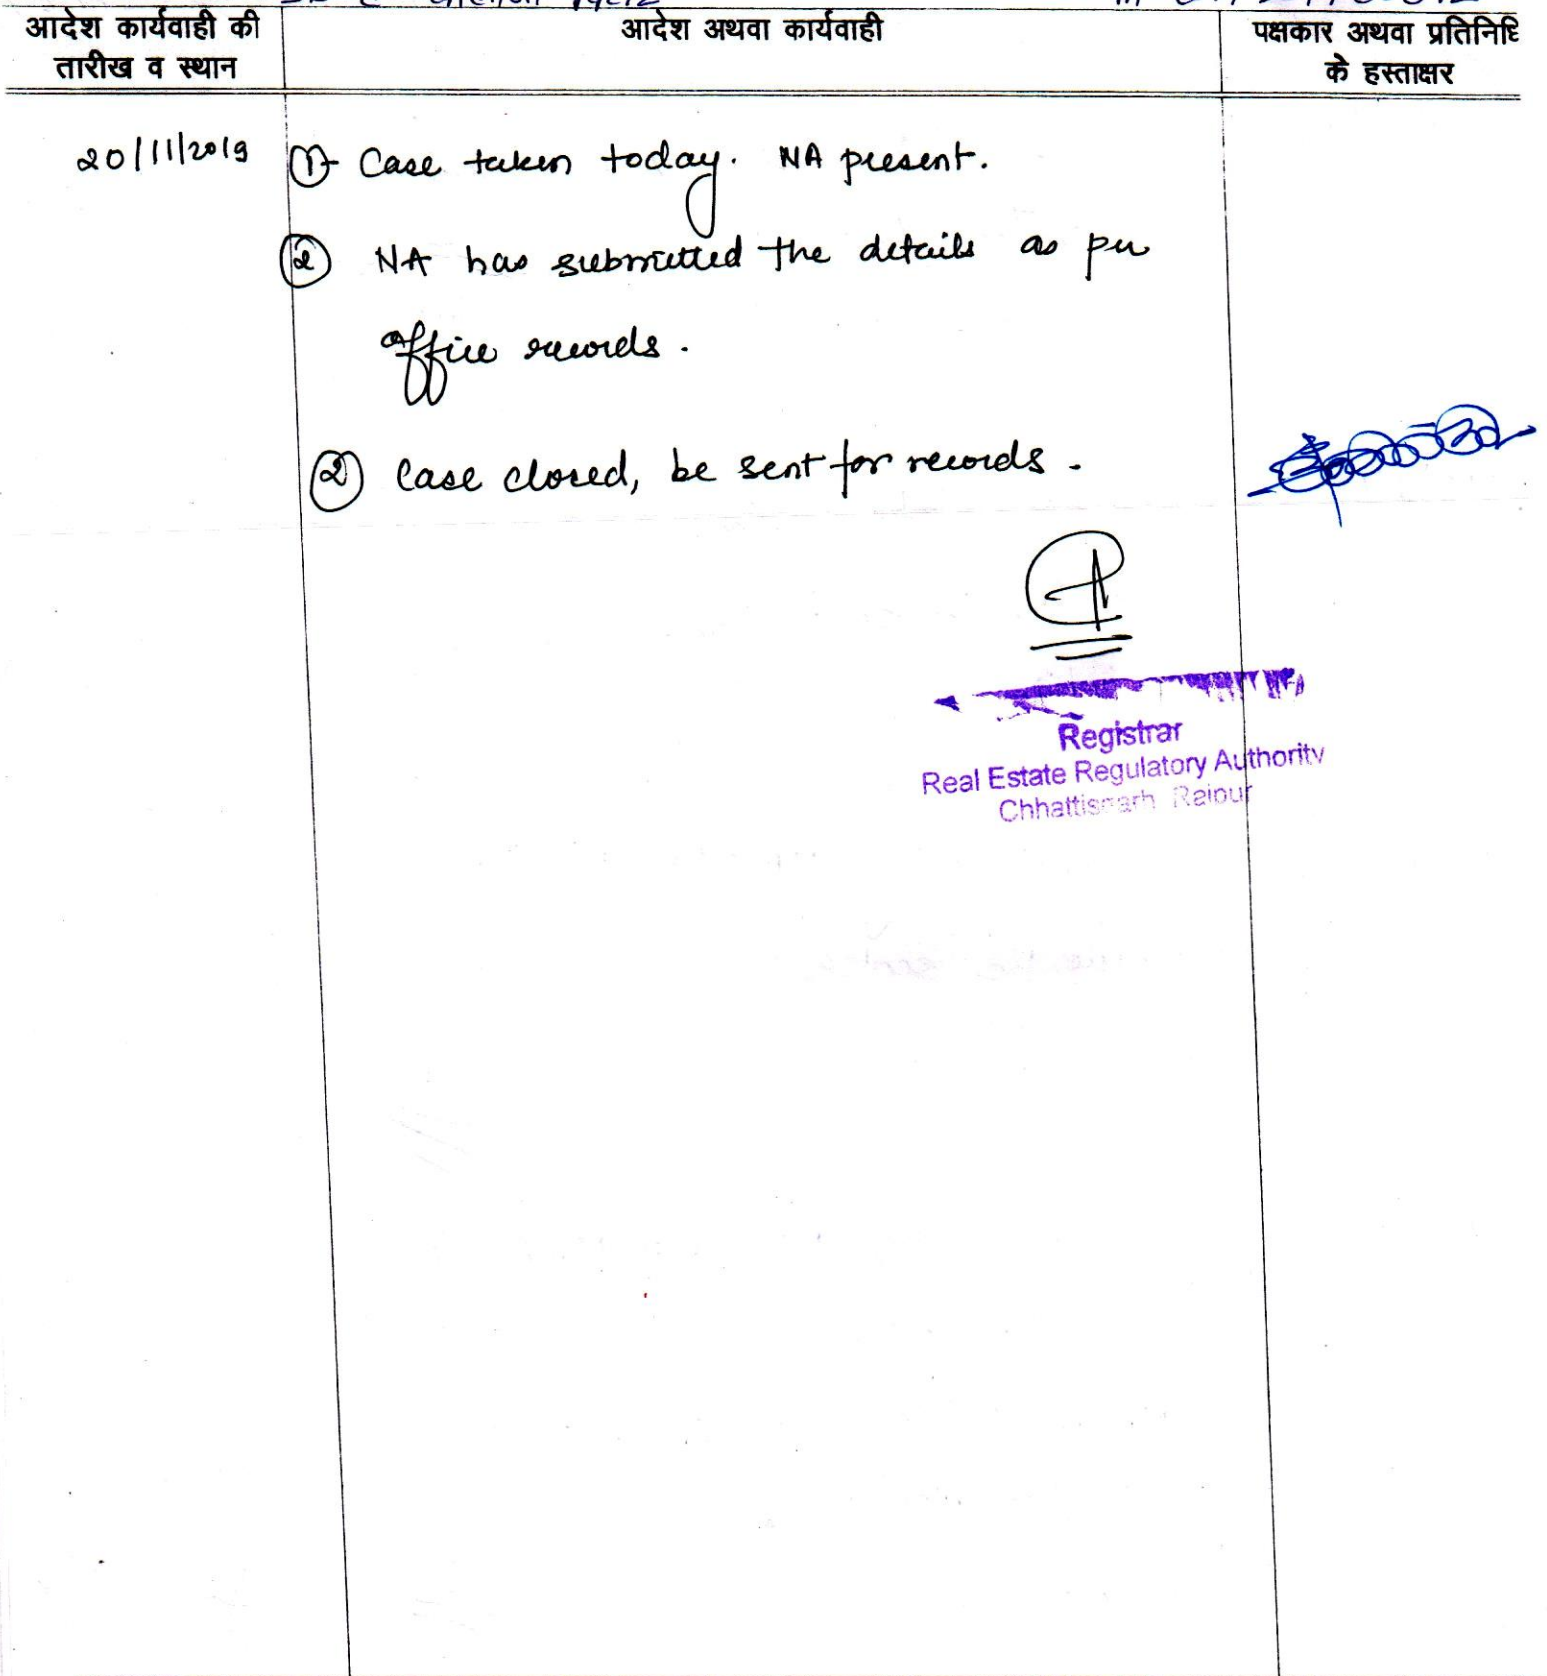 आदेश कार्यवाही की
तारीख व स्थान
आदेश अथवा कार्यवाही
पक्षकार अथवा प्रतिनिधि
के हस्ताक्षर
20/11/2019
① Case taken today. NA present.
② NA has submitted the details as per
office records.
② Case closed, be sent for records.
Registrar
Real Estate Regulatory Authority
Chhattisgarh Raipur